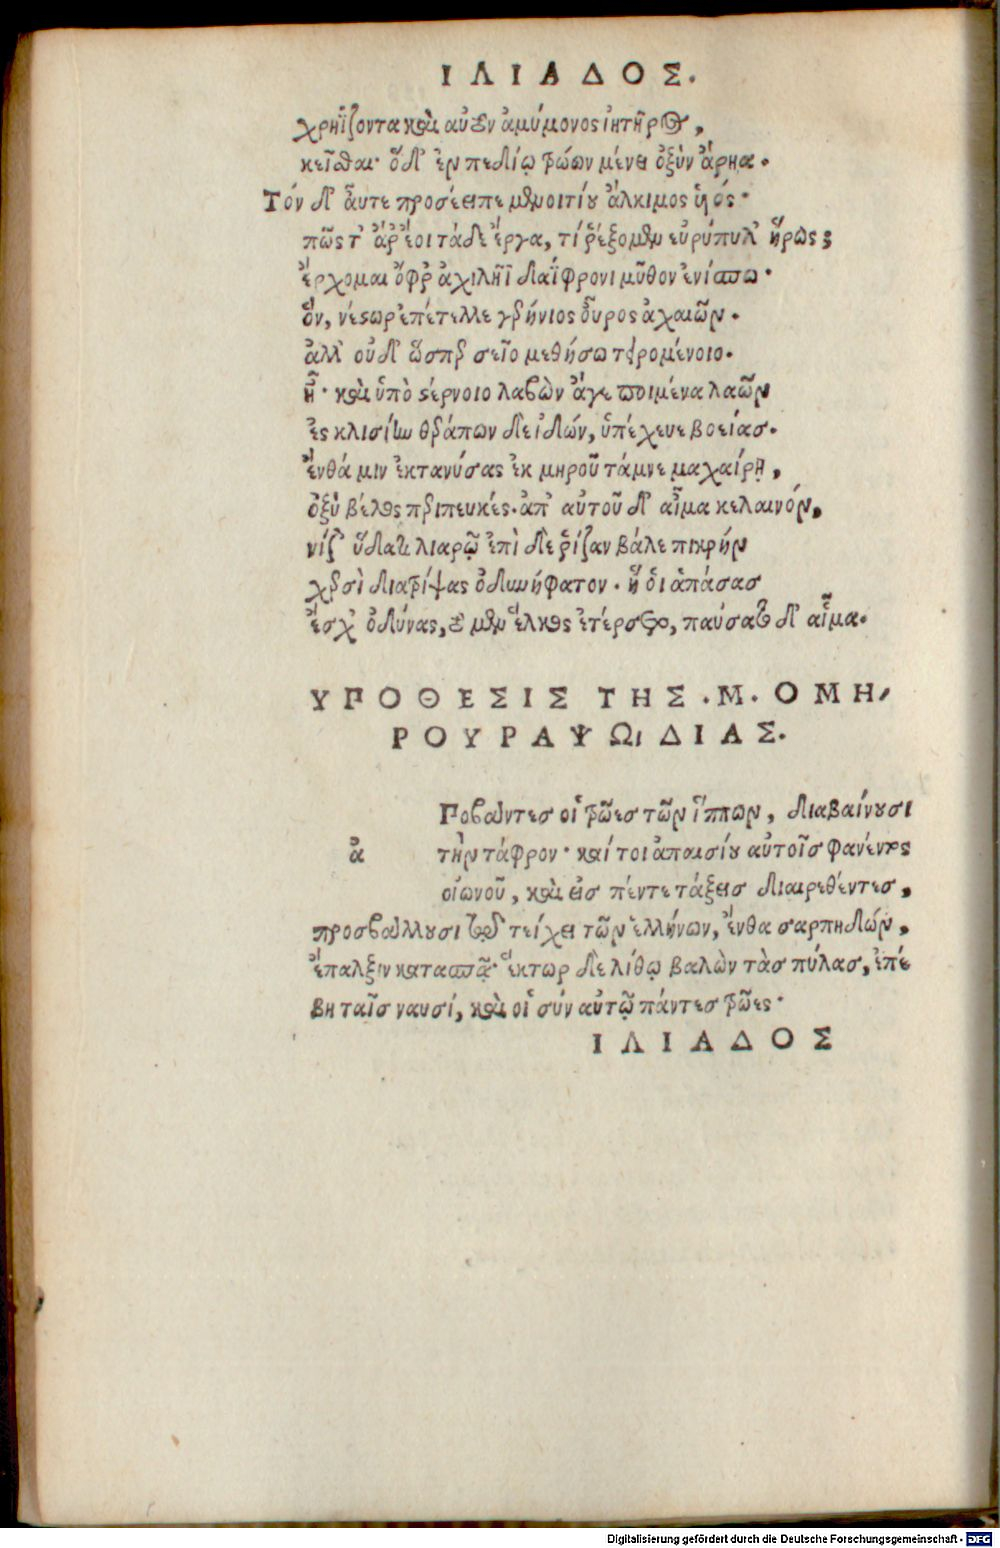 ΙΛΙΑΔΟΣ.
χρηΐζοντα καὶ αὐτὸν ἀμύμονος ἰητῆρος,
κεῖσθαι· ὅδ' ἐν πεδίῳ τρώων μένει ὀξὺν ἄρηα.
Τόν δ' αὖτε προσέειπε μενοιτίου ἄλκιμος ὑιός·
πῶς τ' ἄρ' ἔοι τάδε ἔργα, τί ῥέξομεν εὐρύπυλ' ἥρως;
ἔρχομαι ὄφρ' ἀχιλῆϊ δαΐφρονι μῦθον ἐνίσπω·
ὃν, νέστωρ ἐπέτελλε γερήνιος οὖρος ἀχαιῶν.
ἀλλ' οὐδ' ὥσπερ σεῖο μεθήσω τειρομένοιο.
ἦ· καὶ ὑπὸ στέρνοιο λαβὼν ἄγε ποιμένα λαῶν
ἐς κλισίην θεράπων δὲ ἰδών, ὑπέχευε βοείας.
ἔνθά μιν ἐκτανύσας ἐκ μηροῦ τάμνε μαχαίρῃ,
ὀξὺ βέλος περιπευκές. ἀπ' αὐτοῦ δ' αἷμα κελαινόν,
νίζ' ὕδατι λιαρῷ ἐπὶ δὲ ῥίζαν βάλε πικρήν
χερσὶ διατρίψας ὀδυνήφατον. ἥ ὁι ἁπάσας
ἔσχ' ὀδύνας, τὸ μὲν ἕλκος ἐτέρσετο, παύσατο δ' αἷμα.
ΥΠΟΘΕΣΙΣ ΤΗΣ .Μ. ΟΜΗ,
ΡΟΥ ΡΑΨΩιΔΙΑΣ.
Προβάντες οἱ τρῶες τῶν ἵππων, διαβαίνουσι
ἀ τὴν τάφρον· καί τοι ἀπαισίου αὐτοῖς φανέντος
οἰωνοῦ, καὶ εἰς πέντε τάξεις διαιρεθέντες,
προσβάλλουσι τῷ τείχει τῶν ἑλλήνων, ἔνθα σαρπηδών,
ἔπαλξιν κατασπᾷ· ἕκτωρ δὲ λίθῳ βαλὼν τὰς πύλας, ἐπέ
βη ταῖς ναυσί, καὶ οἱ σύν αὐτῷ πάντες τρῶες·
ΙΛΙΑΔΟΣ
Digitalisierung gefördert durch die Deutsche Forschungsgemeinschaft - DFG